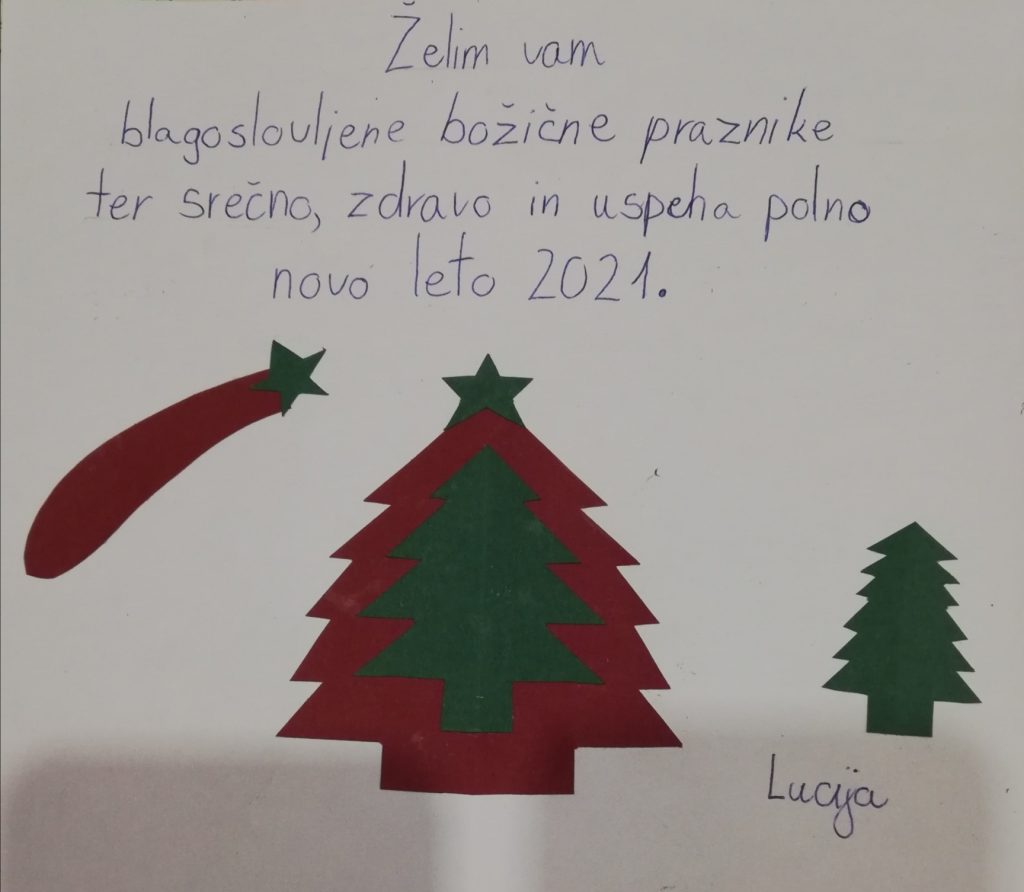 Želim vam
blagoslovljene božične praznike
ter srečno, zdravo in uspeha polno
novo leto 2021.
Lucija